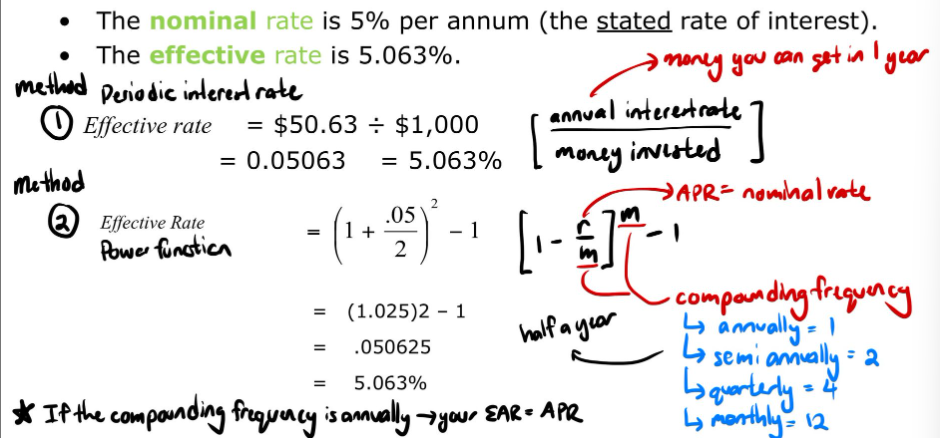 • The nominal rate is 5% per annum (the stated rate of interest).
• The effective rate is 5.063%.
→ money you can get in 1 year
method Periodic interest rate
① Effective rate = $50.63 ÷ $1,000
= 0.05063 = 5.063%
[annual interest rate / money invested]
method
② Effective Rate = (1 + .05/2)^2 − 1
Power function
[1 - r/m]^m - 1
→ APR = nominal rate
= (1.025)2 − 1
= .050625
= 5.063%
half a year
compounding frequency
↳ annually = 1
↳ semi annually = 2
↳ quarterly = 4
↳ monthly = 12
★ If the compounding frequency is annually → your EAR = APR